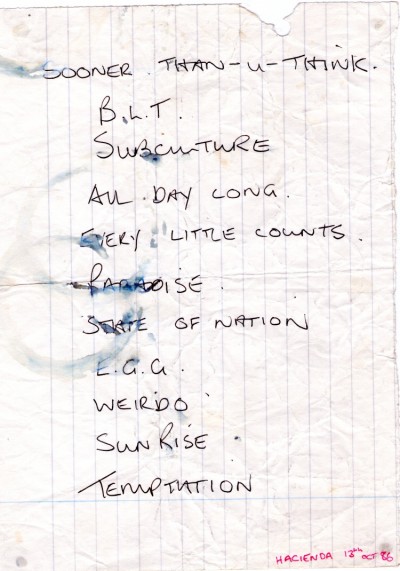 SOONER. THAN-U-THINK.
B.L.T.
SUBCULTURE
ALL DAY LONG.
EVERY LITTLE COUNTS.
PARADISE.
STATE OF NATION
E.G.G.
WEIRDO
SUNRISE.
TEMPTATION
HACIENDA OCT 86